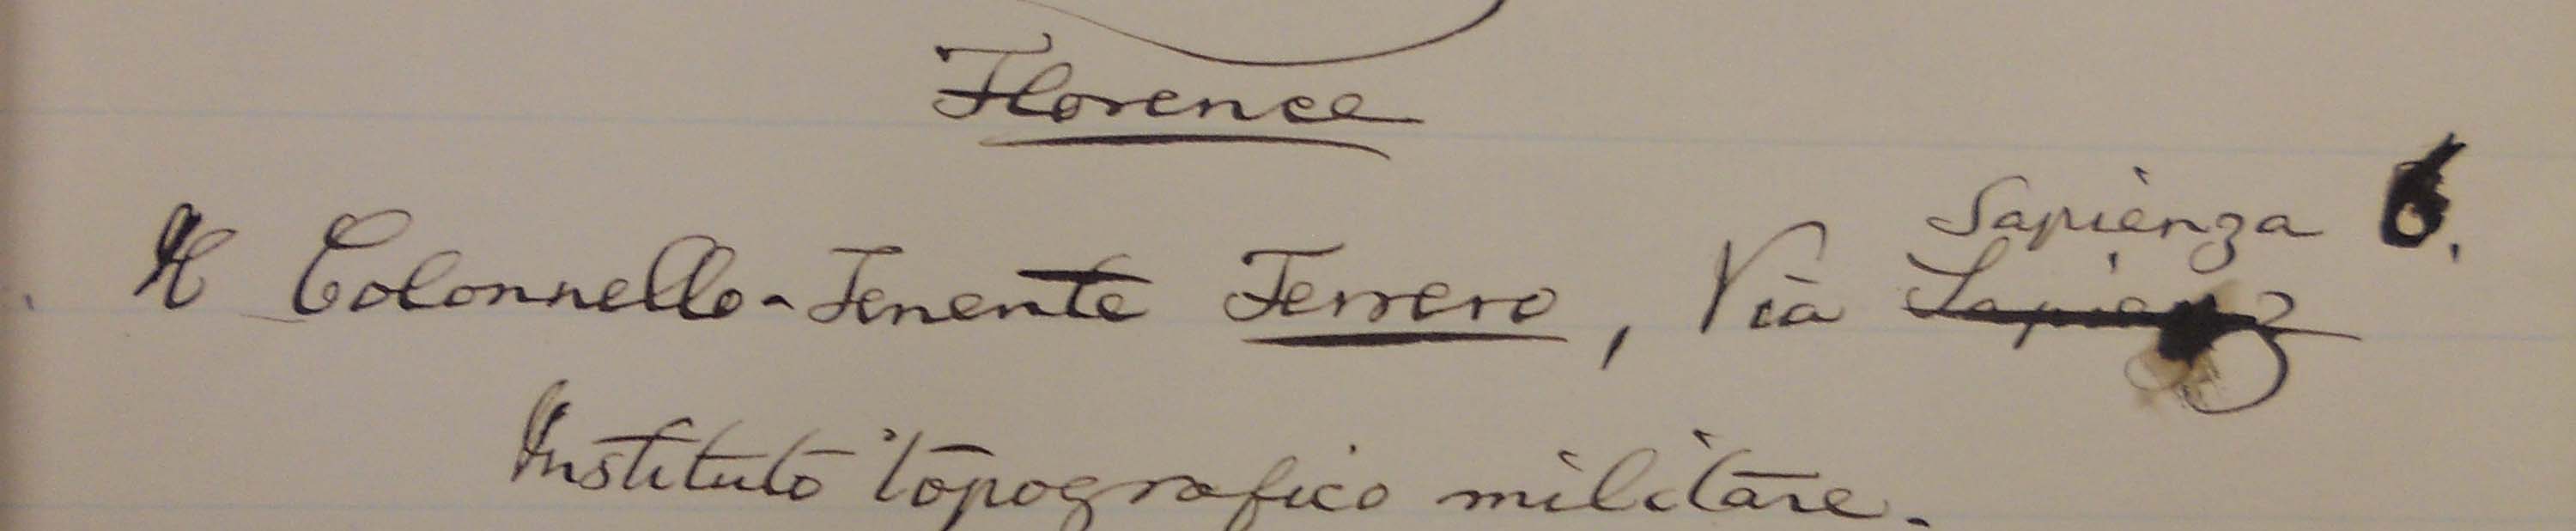 Florence
Il Colonnello-Tenente Ferrero, Via Sapienza 6.
Instituto topografico militare.